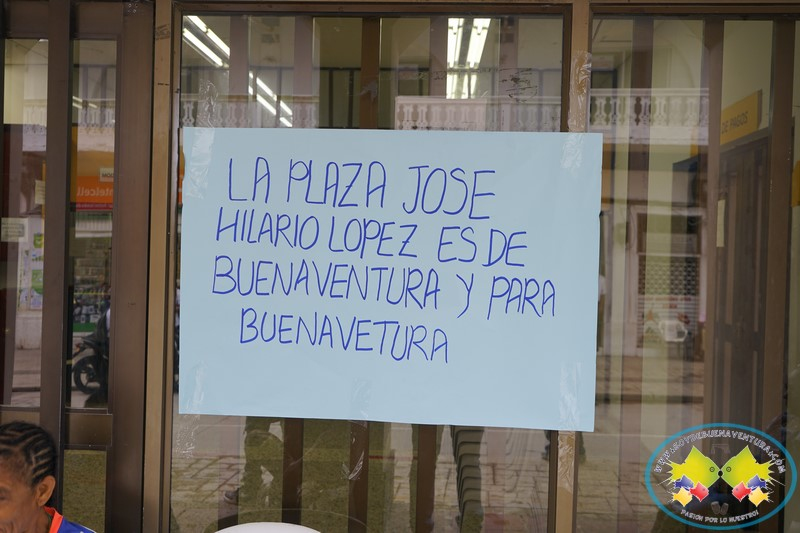 LA PLAZA JOSE
HILARIO LOPEZ ES DE
BUENAVENTURA Y PARA
BUENAVETURA
DE PAGOS
WWW.SOYDEBUENAVENTURA.COM
PASION POR LO NUESTRO!